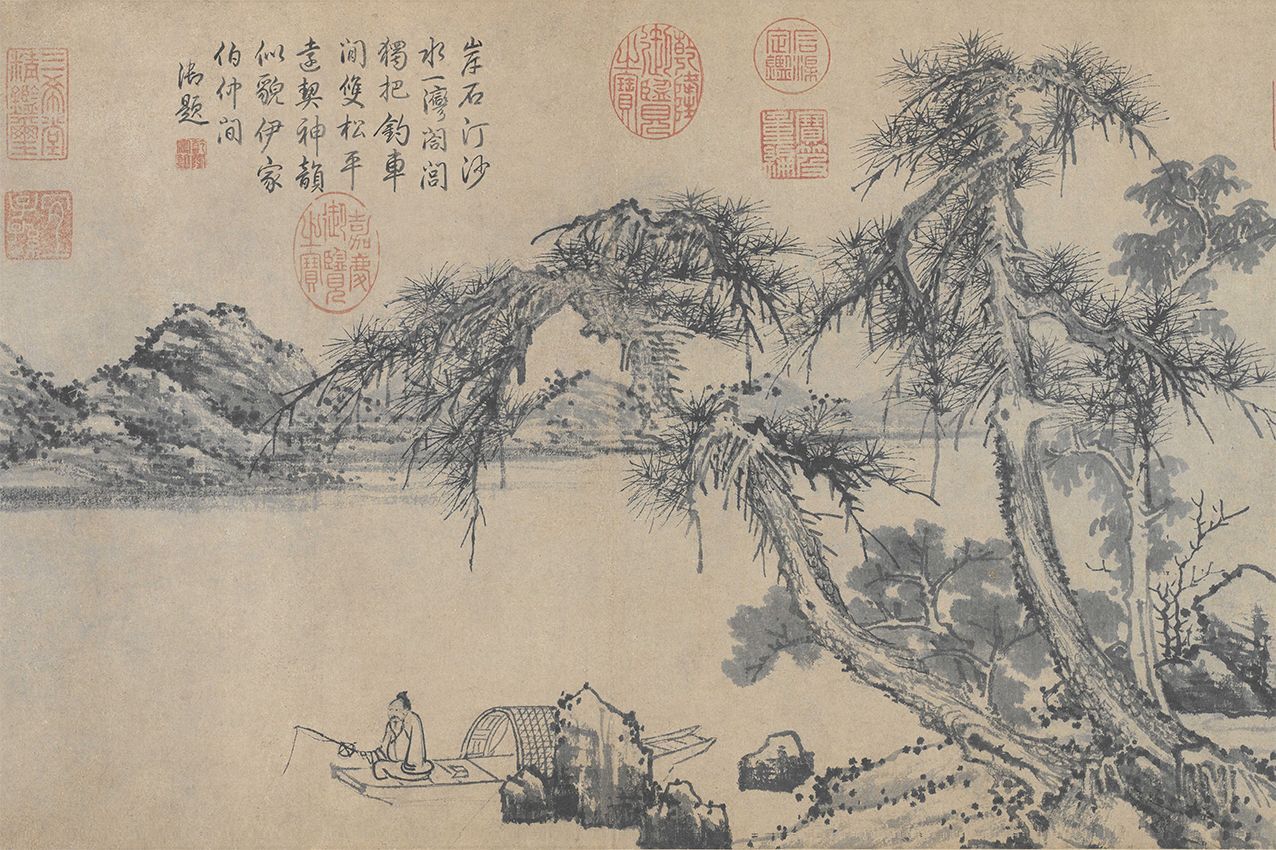 石渠定鑑
寶笈重編
乾隆御覽之寶
岸石汀沙
水一灣閤閭
獨把釣車
閒雙松平
遠契神韻
似貌伊家
伯仲間
御題
嘉慶御覽之寶
三希堂精鑑璽
宜子孫